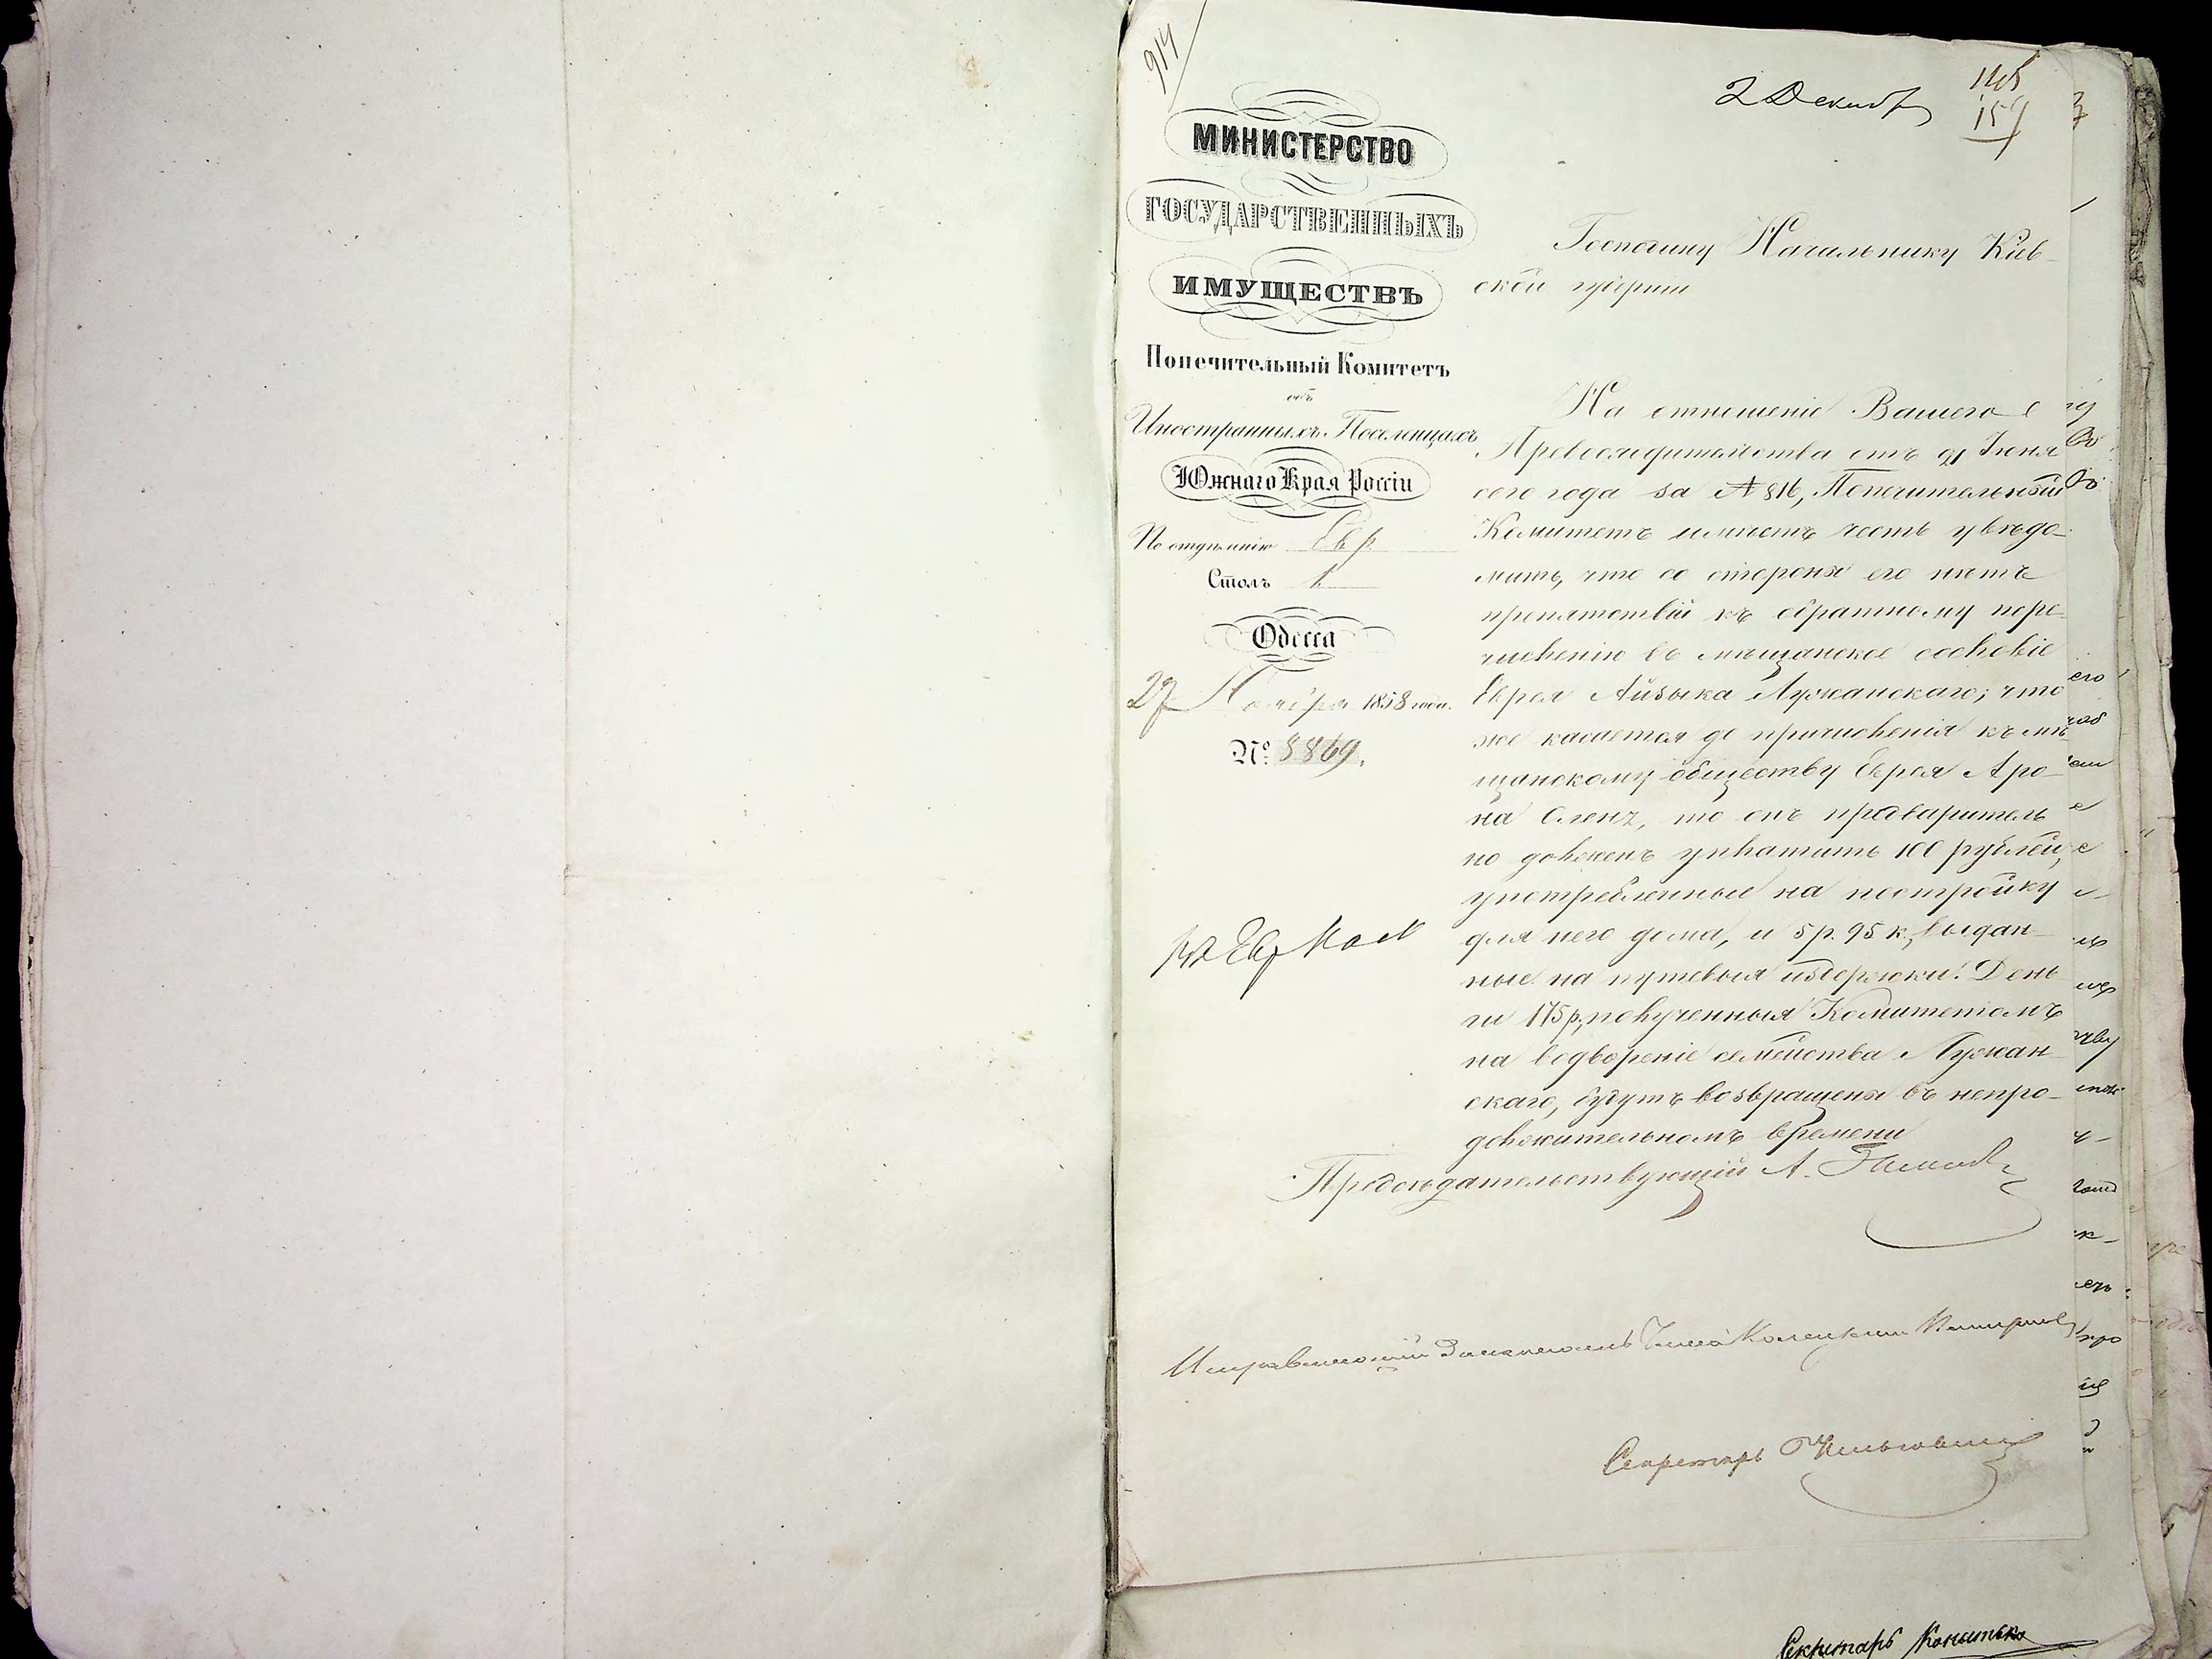 914
2 Декабр
145
157
МИНИСТЕРСТВО
ГОСУДАРСТВЕННЫХЪ
ИМУЩЕСТВЪ
Попечительный Комитетъ
объ
Иностранныхъ Поселенцахъ
Южнаго Края Россіи
По отдѣленію Евр
Столъ 1
Одесса
27 Ноября 1858 года.
№ 8869.
Господину Начальнику Кіев-
ской губерніи
На отношеніе Вашего
Превосходительства отъ 21 Іюня
сего года за № 816, Попечительный
Комитетъ имѣетъ честь увѣдо-
мить, что со стороны его нѣтъ
препятствій къ обратному пере-
численію въ мѣщанское сословіе
Еврея Айзыка Лужанскаго; что
же касается до причисленія къ мѣ-
щанскому обществу Еврея Аро-
на Сленз, то онъ предваритель
но долженъ уплатить 100 рублей,
употребленные на постройку
для него дома, и 5 р. 95 к., выдан-
ные на путевыя издержки. День
ги 175 р., полученныя Комитетомъ
на водвореніе семейства Лужан-
скаго, будутъ возвращены въ непро-
должительномъ времени
Предсѣдательствующій А.
Секретарь
Секретарь